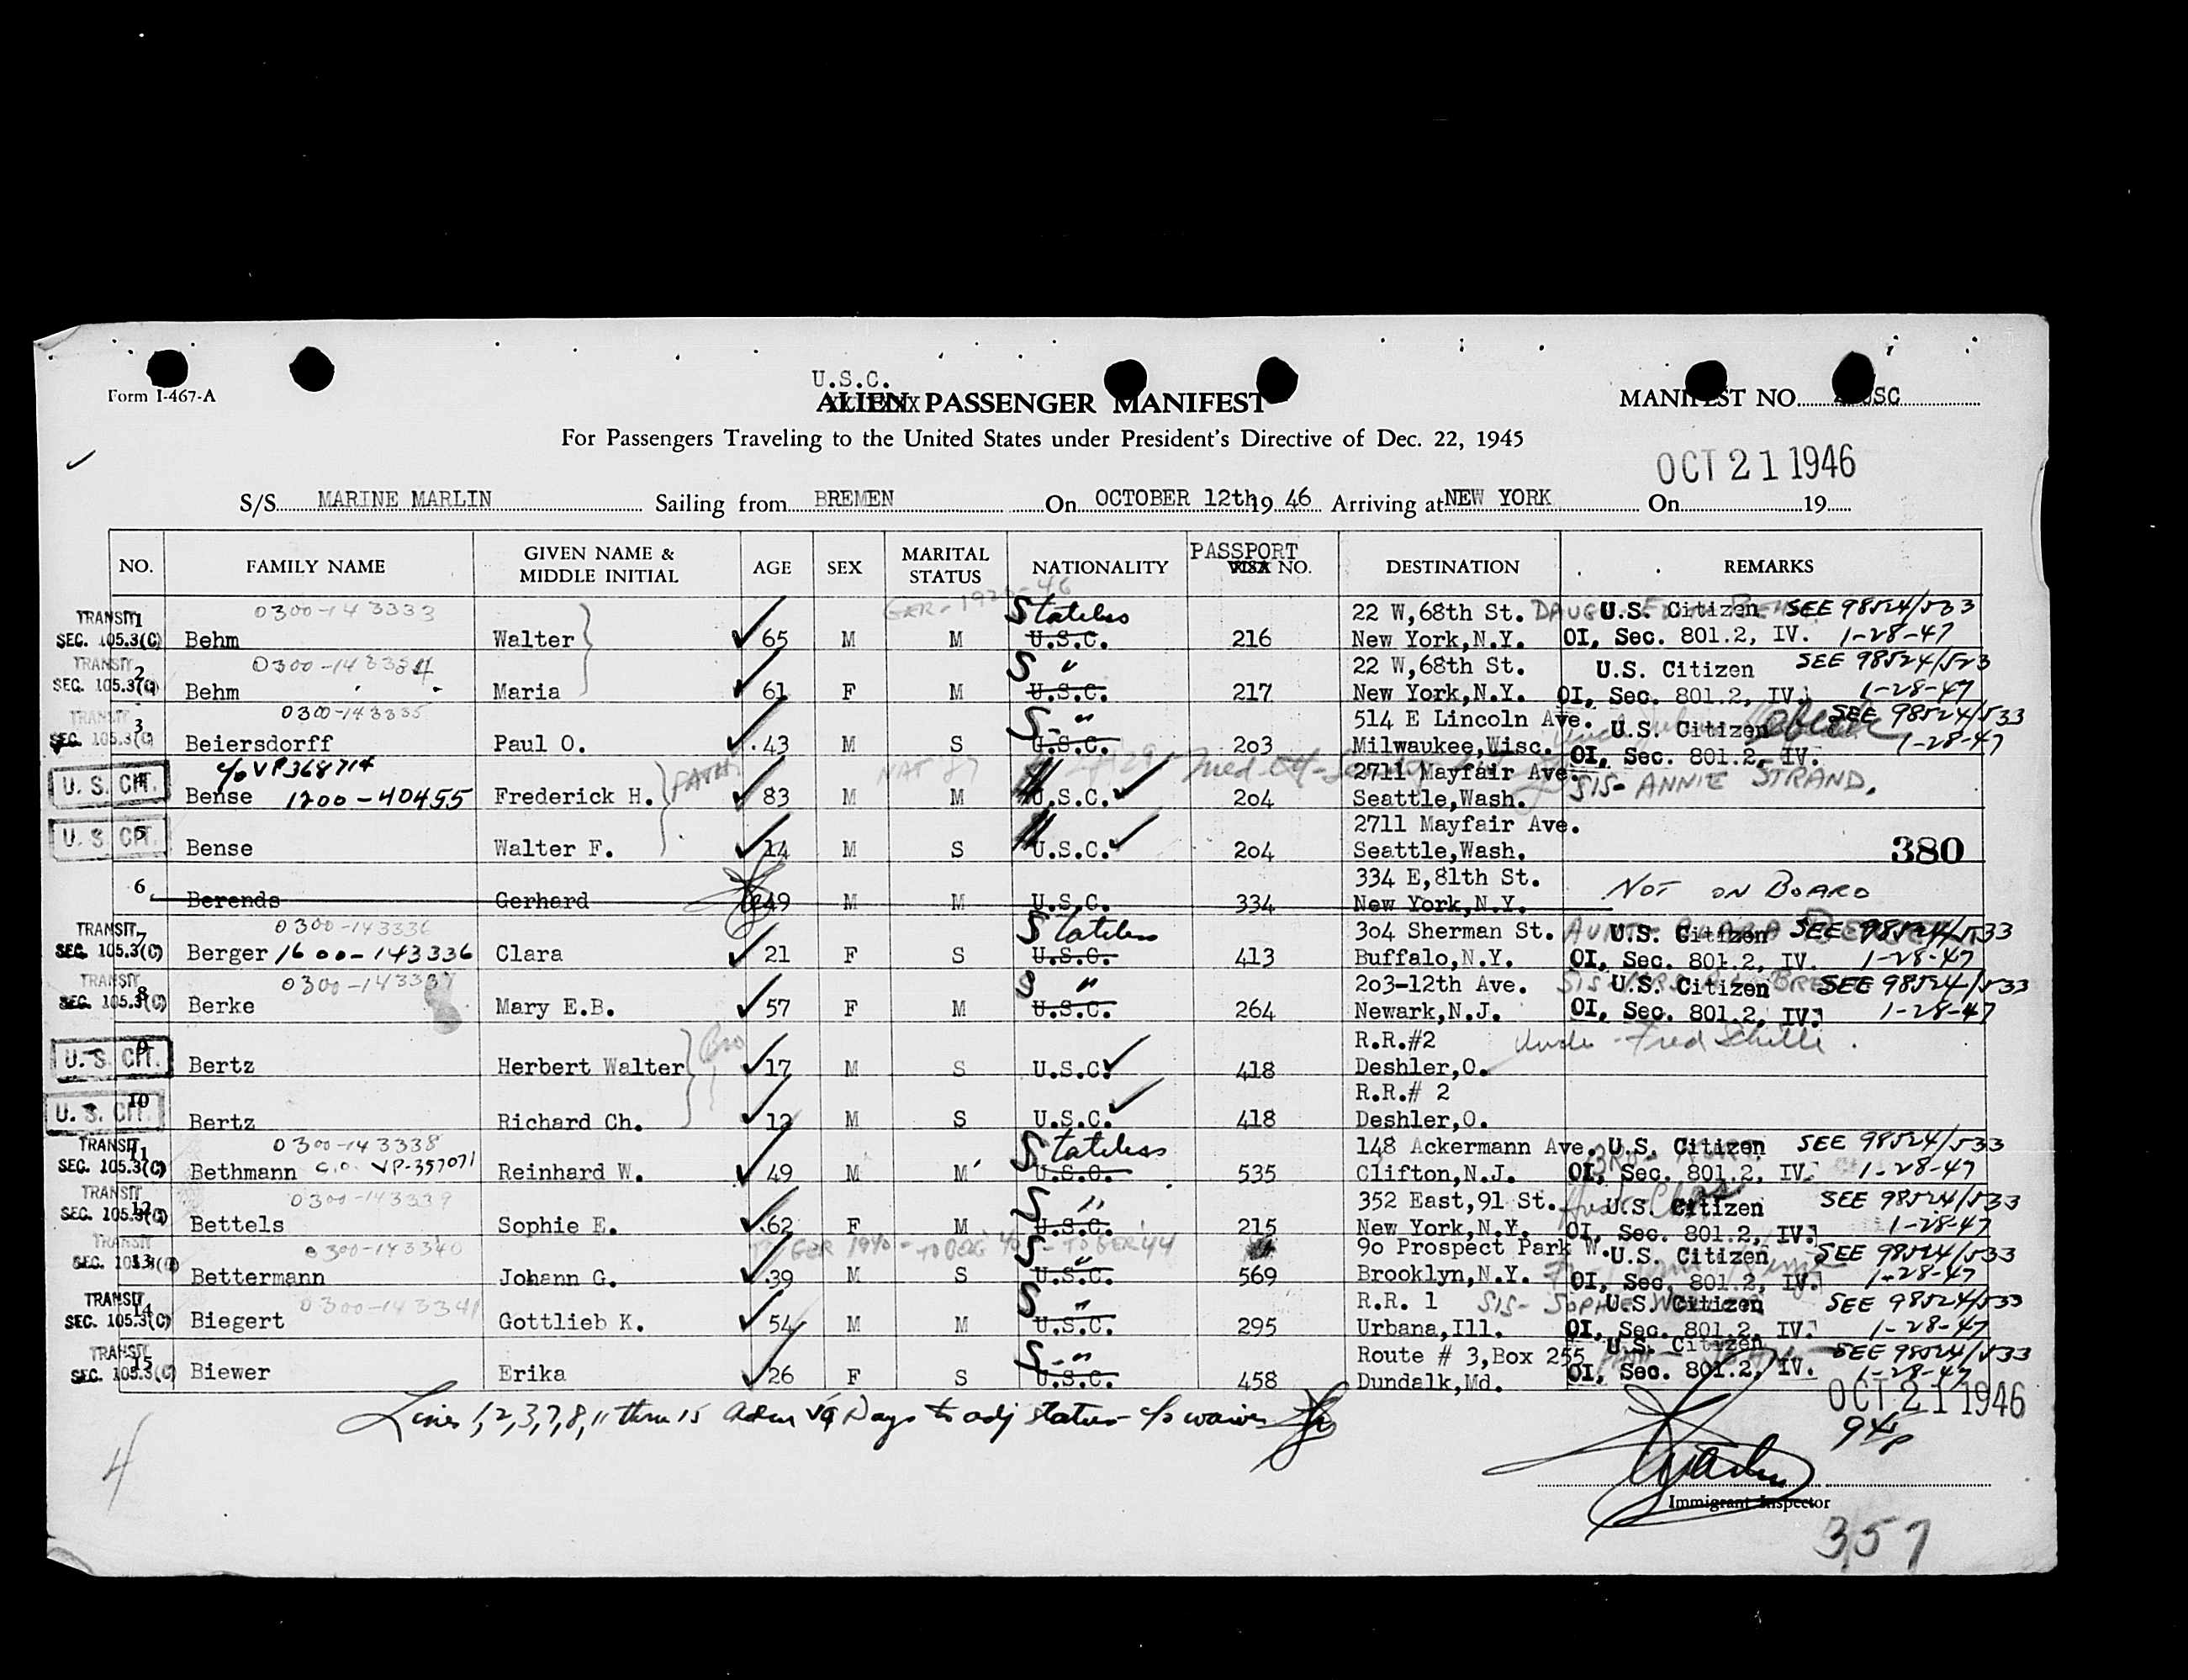 U.S.C.
Form I-467-A
ALIEN PASSENGER MANIFEST
MANIFEST NO. SC
For Passengers Traveling to the United States under President's Directive of Dec. 22, 1945
OCT 21 1946
S/S MARINE MARLIN Sailing from BREMEN On OCTOBER 12th 19 46 Arriving at NEW YORK On 19
NO. FAMILY NAME GIVEN NAME & MIDDLE INITIAL AGE SEX MARITAL STATUS NATIONALITY PASSPORT VISA NO. DESTINATION REMARKS
TRANSIT 1 0300-143333 Stateless 22 W,68th St. U.S. Citizen SEE 98524/533
SEC. 105.3(C) Behm Walter 65 M M U.S.C. 216 New York,N.Y. OI, Sec. 801.2, IV. 1-28-47
TRANSIT 2 0300-143334 S " 22 W,68th St. U.S. Citizen SEE 98524/523
SEC. 105.3(C) Behm Maria 61 F M U.S.C. 217 New York,N.Y. OI, Sec. 801.2, IV. 1-28-47
TRANSIT 3 0300-143335 S - " 514 E Lincoln Ave. U.S. Citizen SEE 98524/533
SEC. 105.3(C) Beiersdorff Paul O. 43 M S U.S.C. 203 Milwaukee,Wisc. OI, Sec. 801.2, IV. 1-28-47
U. S. CIT. 4 c/o VP368714 NAT 2711 Mayfair Ave. SIS- ANNIE STRAND.
Bense 1200-40455 Frederick H. FATH. 83 M M U.S.C. 204 Seattle,Wash.
U. S. CIT. 5 2711 Mayfair Ave.
Bense Walter F. 14 M S U.S.C. 204 Seattle,Wash. 380
6 334 E,81th St. NOT ON BOARD
Berends Gerhard 49 M M U.S.C. 334 New York,N.Y.
TRANSIT 7 0300-143336 Stateless 304 Sherman St. AUNT- U.S. Citizen SEE 98524/533
SEC. 105.3(C) Berger 1600-143336 Clara 21 F S U.S.C. 413 Buffalo,N.Y. OI, Sec. 801.2, IV. 1-28-47
TRANSIT 8 0300-143337 S " 203-12th Ave. U.S. Citizen SEE 98524/533
SEC. 105.3(C) Berke Mary E.B. 57 F M U.S.C. 264 Newark,N.J. OI, Sec. 801.2, IV. 1-28-47
U. S. CIT. 9 Bro R.R.#2
Bertz Herbert Walter 17 M S U.S.C. 418 Deshler,O.
U. S. CIT. 10 R.R.# 2
Bertz Richard Ch. 12 M S U.S.C. 418 Deshler,O.
TRANSIT 11 0300-143338 Stateless 148 Ackermann Ave. U.S. Citizen SEE 98524/533
SEC. 105.3(C) Bethmann c.o. VP-357071 Reinhard W. 49 M M U.S.C. 535 Clifton,N.J. OI, Sec. 801.2, IV. 1-28-47
TRANSIT 12 0300-143339 S " 352 East,91 St. U.S. Citizen SEE 98524/533
SEC. 105.3(C) Bettels Sophie E. 62 F M U.S.C. 215 New York,N.Y. OI, Sec. 801.2, IV. 1-28-47
TRANSIT 13 0300-143340 GER 1940- S " 90 Prospect Park W. U.S. Citizen SEE 98524/533
SEC. 105.3(C) Bettermann Johann G. 39 M S U.S.C. 569 Brooklyn,N.Y. OI, Sec. 801.2, IV. 1-28-47
TRANSIT 14 0300-143341 S " R.R. 1 SIS- SOPHIE U.S. Citizen SEE 98524/533
SEC. 105.3(C) Biegert Gottlieb K. 54 M M U.S.C. 295 Urbana,Ill. OI, Sec. 801.2, IV. 1-28-47
TRANSIT 15 S - " Route # 3,Box 255 U.S. Citizen SEE 98524/533
SEC. 105.3(C) Biewer Erika 26 F S U.S.C. 458 Dundalk,Md. OI, Sec. 801.2, IV. 1-28-47
OCT 21 1946
Lines 1,2,3,7,8,11 thru 15 Days to adj status- c/o waiver
4
Immigrant Inspector
357